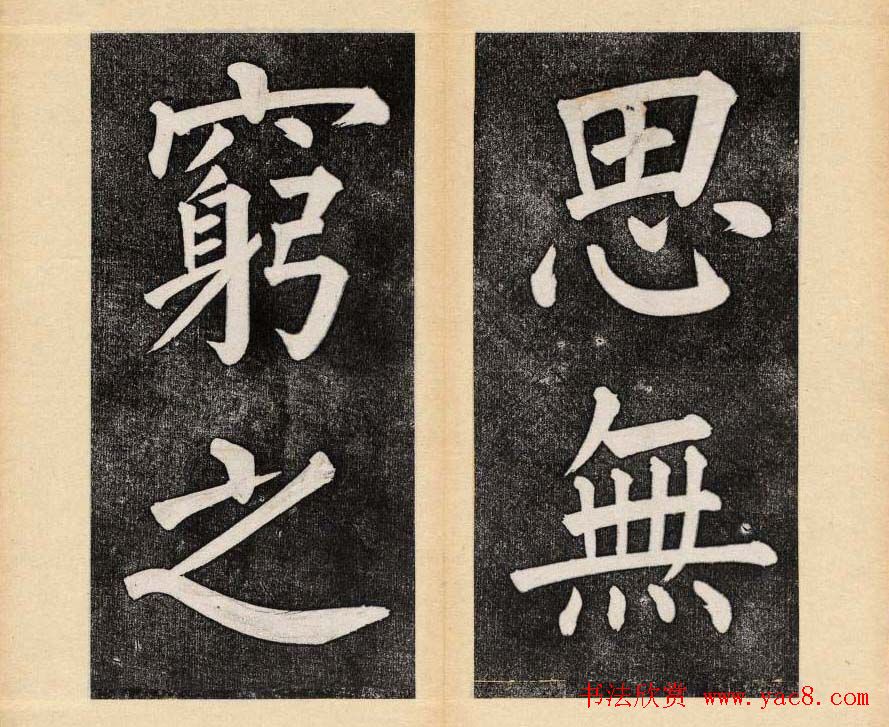 思無
窮之
书法欣赏 www.yac8.com